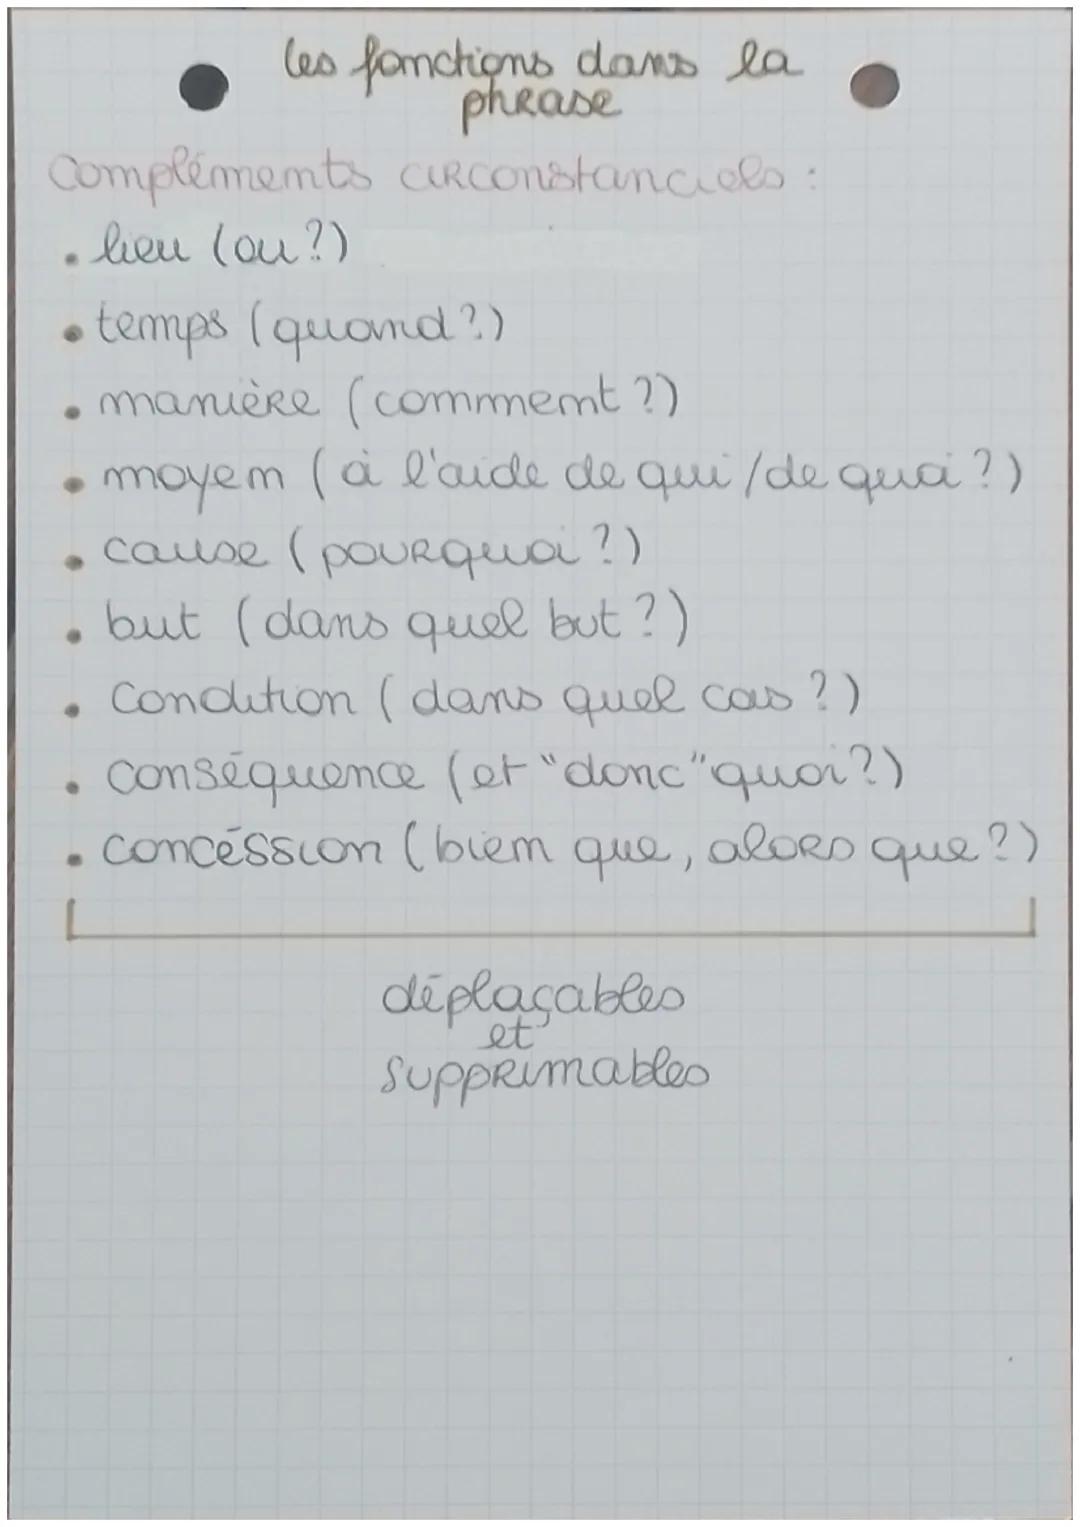 les fonctions dans la
phrase
Compléments circonstanciels :
• lieu (ou ?)
• temps (quand ?)
• manière (comment ?)
• moyen (à l'aide de qui/de quoi ?)
• cause (pourquoi ?)
• but (dans quel but ?)
• Condition (dans quel cas ?)
• conséquence (et "donc" quoi ?)
• concéssion (bien que, alors que ?)
déplaçables
et
supprimables